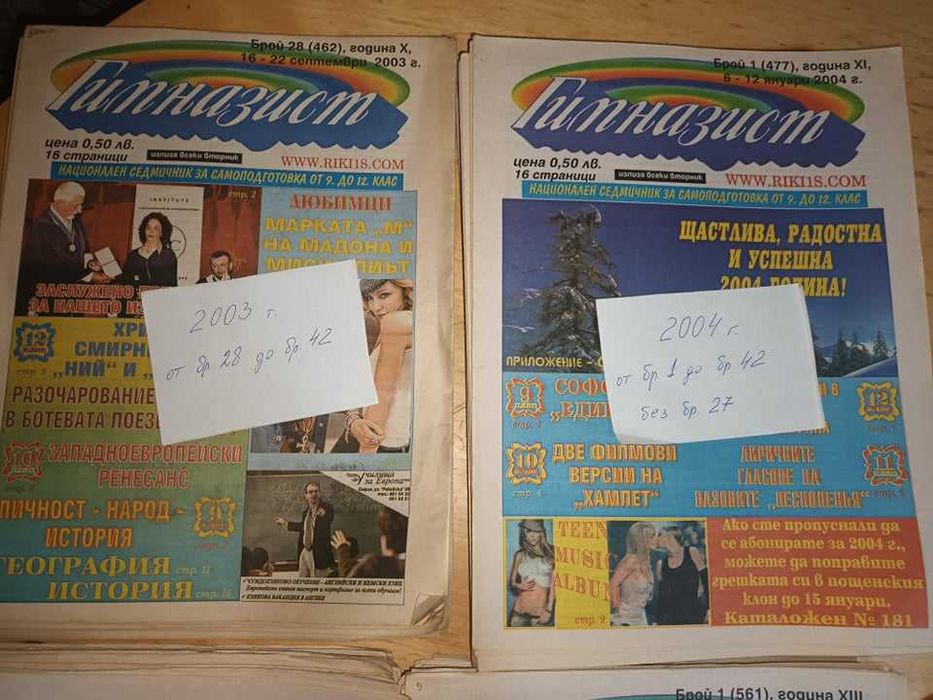 Брой 28 (462), година X,
16 - 22 септември 2003 г.
Гимназист
цена 0,50 лв.
16 страници
излиза всеки вторник
WWW.RIKI18.COM
НАЦИОНАЛЕН СЕДМИЧНИК ЗА САМОПОДГОТОВКА ОТ 9. ДО 12. КЛАС
INSTITUTE
стр. 2
ЛЮБИМЦИ
МАРКАТА „М“
НА МАДОНА И
ЗАСЛУЖЕНО
ЗА НАШЕТО
12
клас
стр. 6
СМИРН
„НИЙ“ И
РАЗОЧАРОВАНИЕ
В БОТЕВАТА
ЗАПАДНОЕВРОПЕЙСКИ
РЕНЕСАНС
ЛИЧНОСТ - НАРОД -
ИСТОРИЯ
ГЕОГРАФИЯ стр. 11
ИСТОРИЯ
Училища
за Европа
ЧУЖДОЕЗИКОВО ОБУЧЕНИЕ - АНГЛИЙСКИ И НЕМСКИ ЕЗИК
ЕЗИКОВА ВАКАНЦИЯ В АНГЛИЯ
2003 г.
от бр 28 до бр 42
Брой 1 (477), година XI,
6 - 12 януари 2004 г.
Гимназист
цена 0,50 лв.
16 страници
излиза всеки вторник
WWW.RIKI18.COM
НАЦИОНАЛЕН СЕДМИЧНИК ЗА САМОПОДГОТОВКА ОТ 9. ДО 12. КЛАС
ЩАСТЛИВА, РАДОСТНА
И УСПЕШНА
2004 ГОДИНА!
ПРИЛОЖЕНИЕ -
9
клас
СОФО
„ЕДИП
12
клас
10
клас
стр. 4
ДВЕ ФИЛМОВИ
ВЕРСИИ НА
„ХАМЛЕТ“
ЛИРИЧНИТЕ
ГЛАСОВЕ НА
ВАЗОВИТЕ „ПЕСНОПЕНИЯ“
11
клас
TEEN
MUSIC
ALBUM
стр. 9
Ако сте пропуснали да
се абонирате за 2004 г.,
можете да поправите
грешката си в пощенския
клон до 15 януари.
Каталожен № 181
2004 г.
от бр. 1 до бр 42
без бр. 27
Брой 1 (561), година XIII